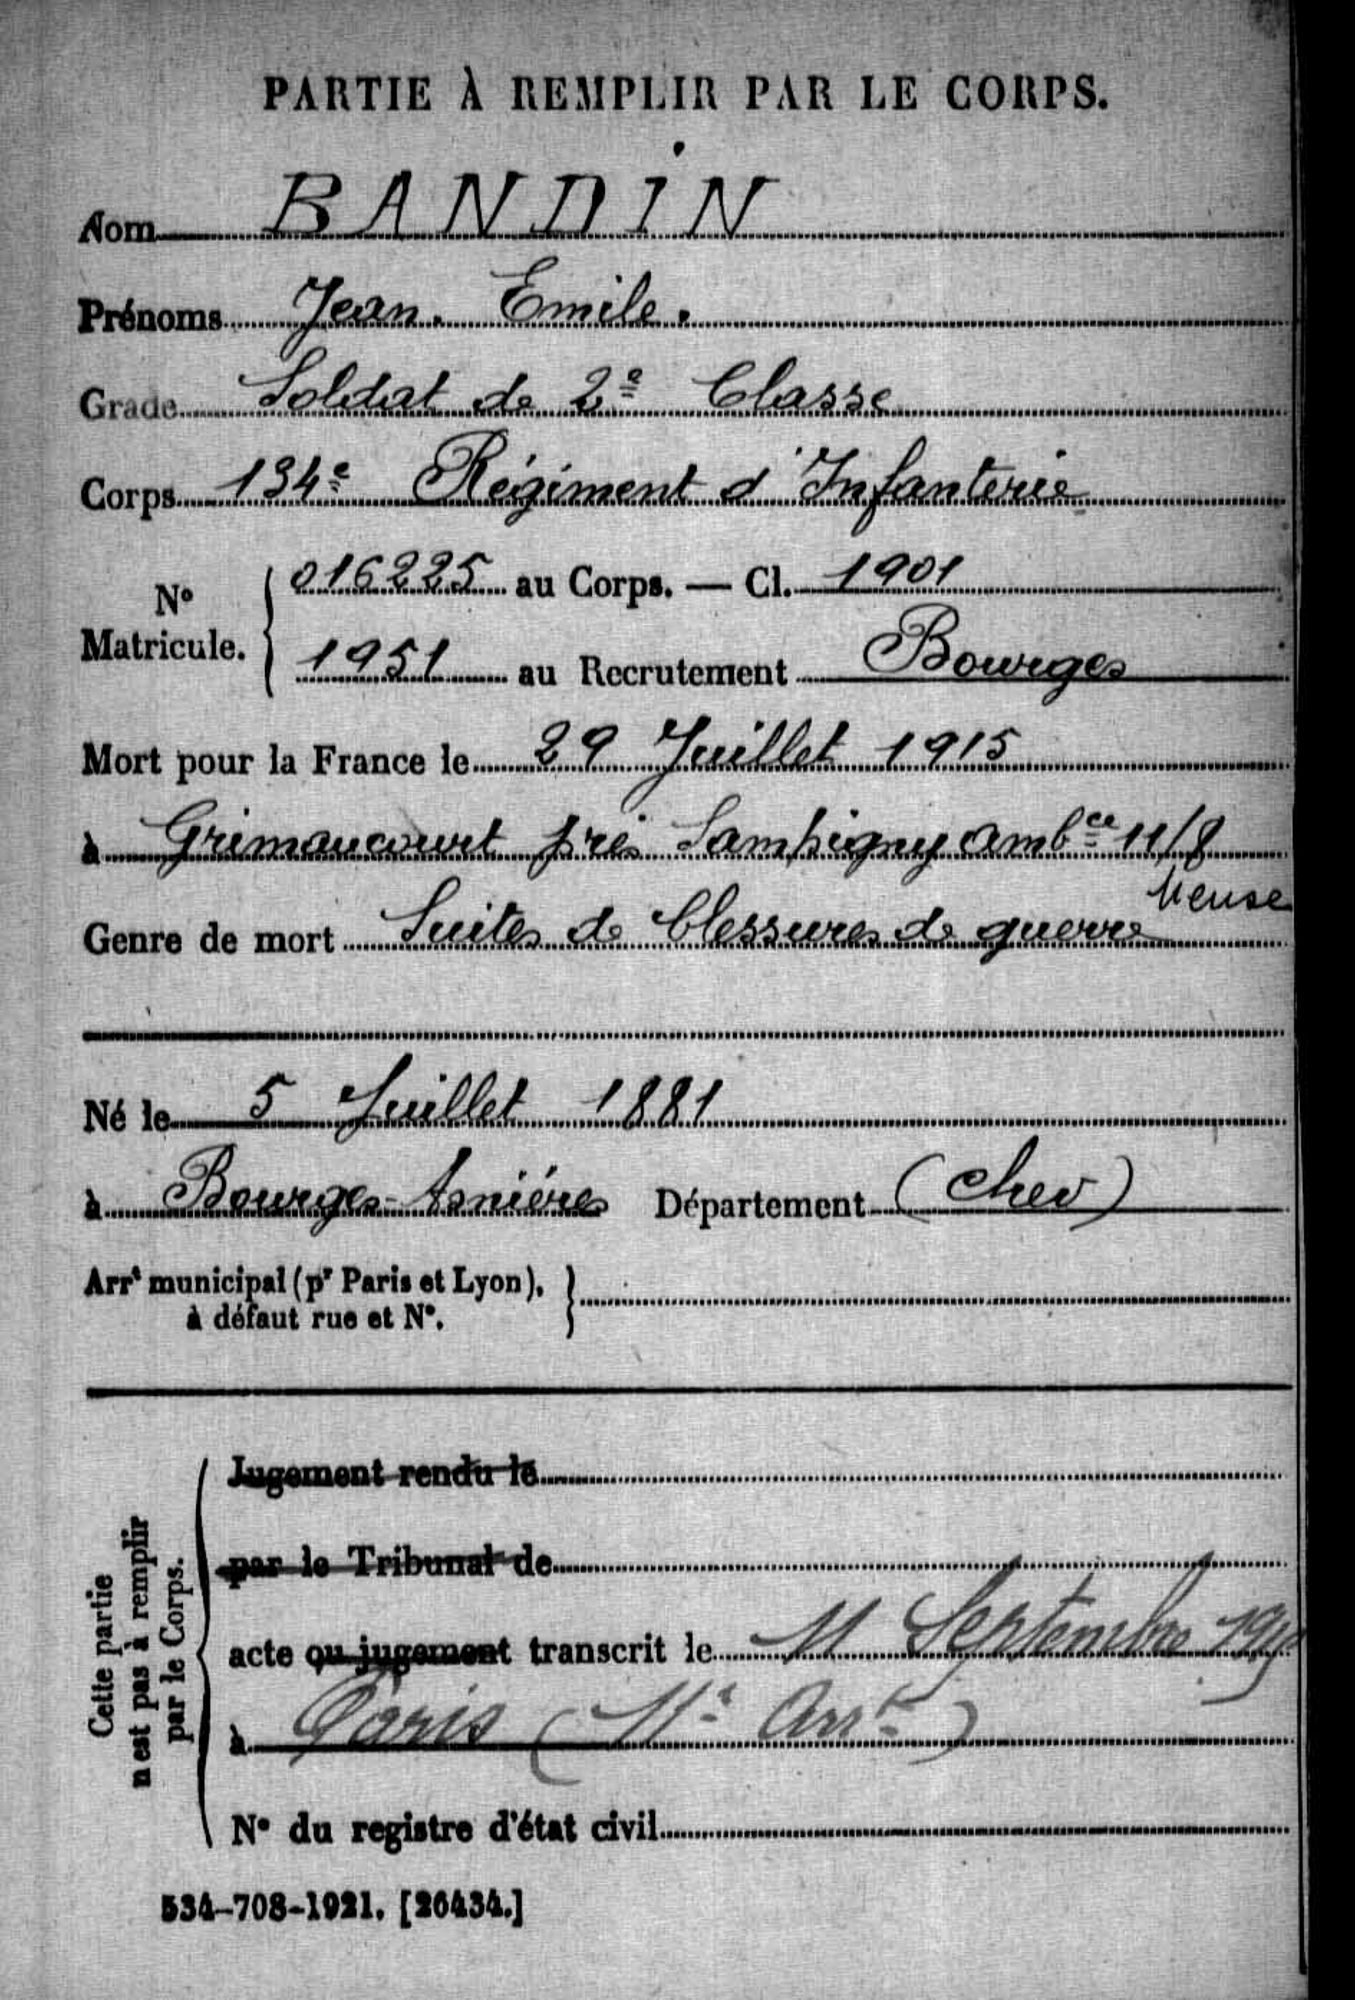 PARTIE À REMPLIR PAR LE CORPS.
Nom BANDIN
Prénoms Jean. Emile.
Grade Soldat de 2e Classe
Corps 134e Régiment d'Infanterie
No Matricule. { 016225 au Corps. — Cl. 1901
1951 au Recrutement Bourges
Mort pour la France le 29 Juillet 1915
à Grimaucourt près Sampigny ambce 11/8
Meuse
Genre de mort Suites de blessures de guerre
Né le 5 Juillet 1881
à Bourges-Asniéres Département (Cher)
Arrt municipal (pr Paris et Lyon), à défaut rue et No. }
Cette partie n'est pas à remplir par le Corps.
Jugement rendu le
par le Tribunal de
acte ou jugement transcrit le 11 Septembre
à Paris (11e Arrt)
No du registre d'état civil
534-708-1921. [26434.]